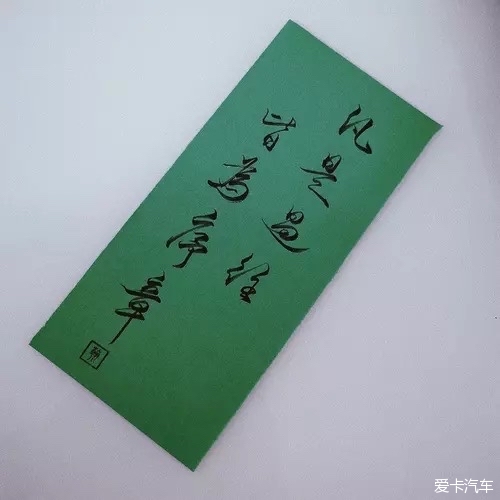 凡是過经
皆为序章
爱卡汽车